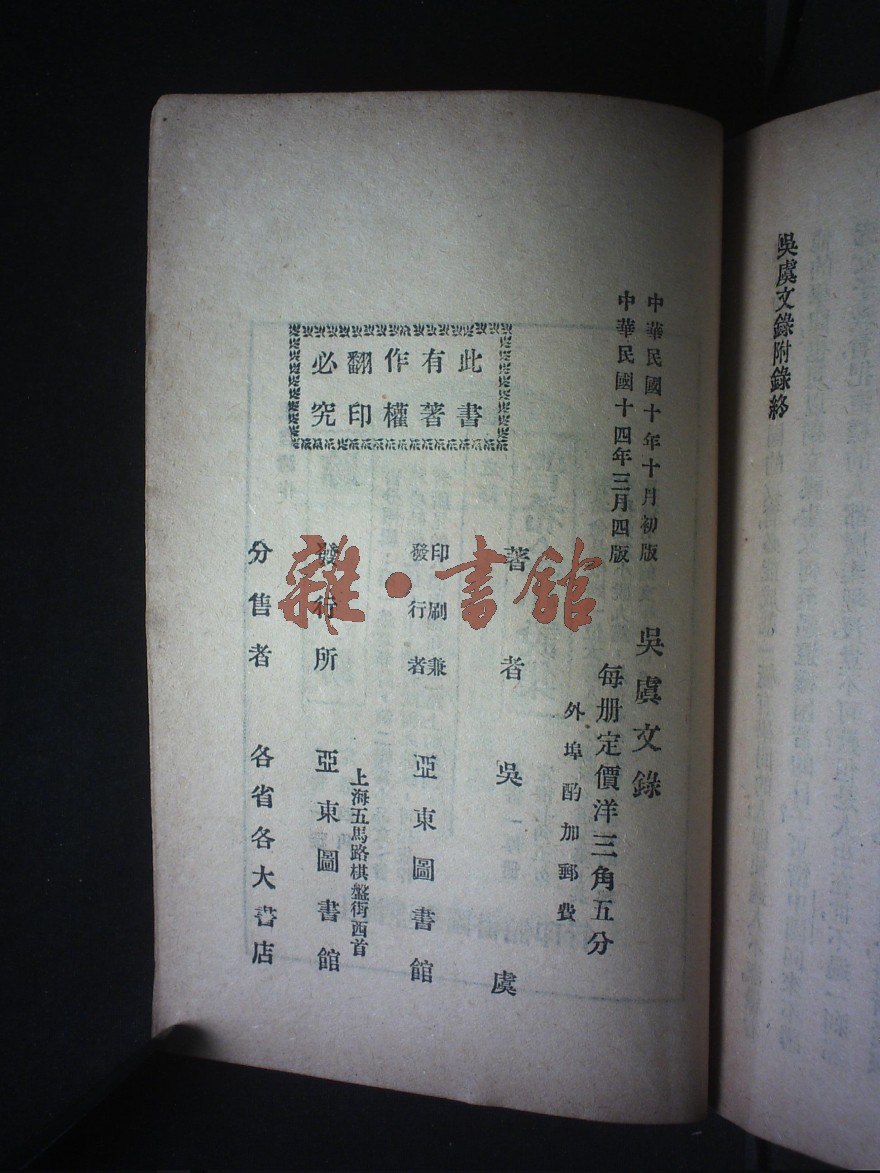 吳虞文錄附錄終
中華民國十年十月初版
中華民國十四年三月四版
吳虞文錄
每册定價洋三角五分
外埠酌加郵費
此書
有著
作權
翻印
必究
著者 吳虞
印刷兼
發行者 亞東圖書館
上海五馬路棋盤街西首
發行所 亞東圖書館
分售者 各省各大書店
雜·書館